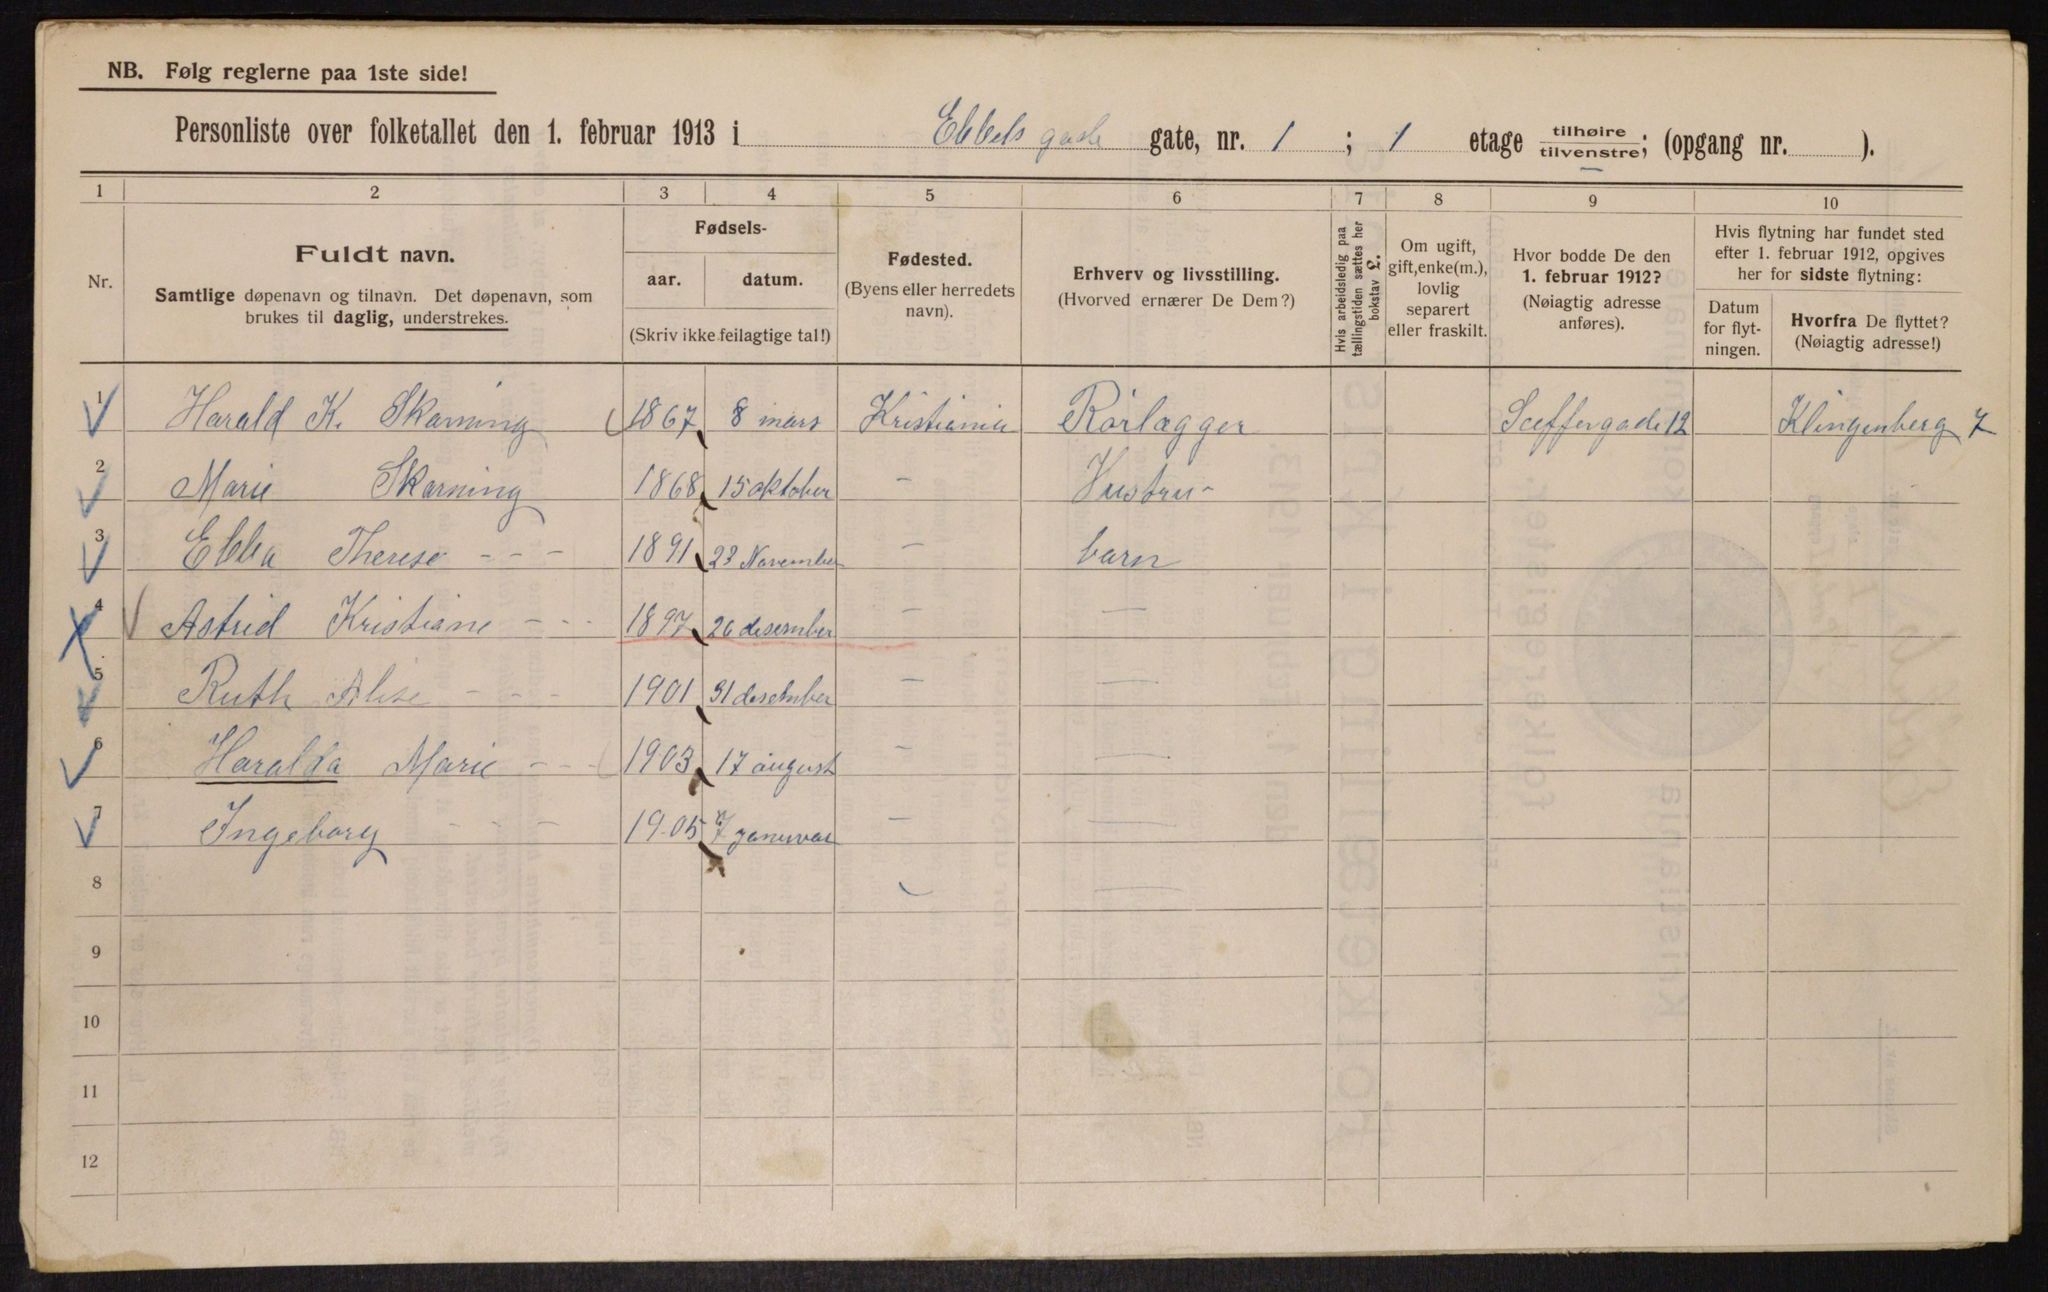 NB. Følg reglerne paa 1ste side!
Personliste over folketallet den 1. februar 1913 i Ebbels gade gate, nr. 1 ; 1 etage tilhøire / tilvenstre; (opgang nr. ).
1 2 3 4 5 6 7 8 9 10
Nr.
Fuldt navn.
Samtlige døpenavn og tilnavn. Det døpenavn, som
brukes til daglig, understrekes.
Fødsels-
aar. datum.
(Skriv ikke feilagtige tal!)
Fødested.
(Byens eller herredets
navn).
Erhverv og livsstilling.
(Hvorved ernærer De Dem?)
Hvis arbeidsledig paa
tællingstiden sættes her
bokstav L.
Om ugift,
gift, enke(m.),
lovlig
separert
eller fraskilt.
Hvor bodde De den
1. februar 1912?
(Nøiagtig adresse
anføres).
Hvis flytning har fundet sted
efter 1. februar 1912, opgives
her for sidste flytning:
Datum
for flyt-
ningen.
Hvorfra De flyttet?
(Nøiagtig adresse!)
1 Harald K. Skarning 1867 8 mars Kristiania Rörlægger Sceffergade 12 Klingenberg 7
2 Marie Skarning 1868 15 oktober - Hustru -
3 Ebba Therese - - - 1891 23 November - barn
4 Astrid Kristiane - - - 1897 26 desember - —
5 Ruth Alise - - - 1901 31 desember - —
6 Haralda Marie - - - 1903 17 august - —
7 Ingeborg - - - 1905 7 januar - —
8 - —
9
10
11
12